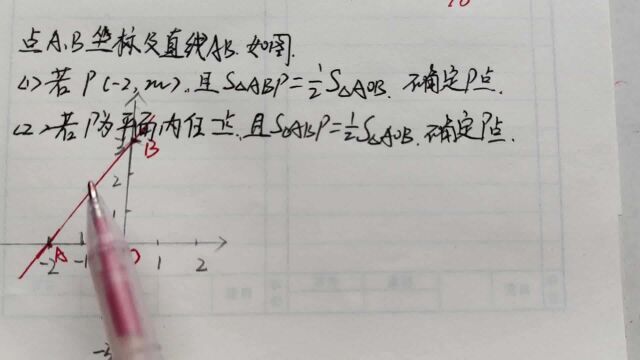 点A.B坐标及直线AB.如图.
(1)若P(-2,m),且S△ABP=½S△AOB.不确定P点.
(2)若P为平面内任一点,且S△ABP=½S△AOB.不确定P点.
B
2
1
A
-2 -1 1 2